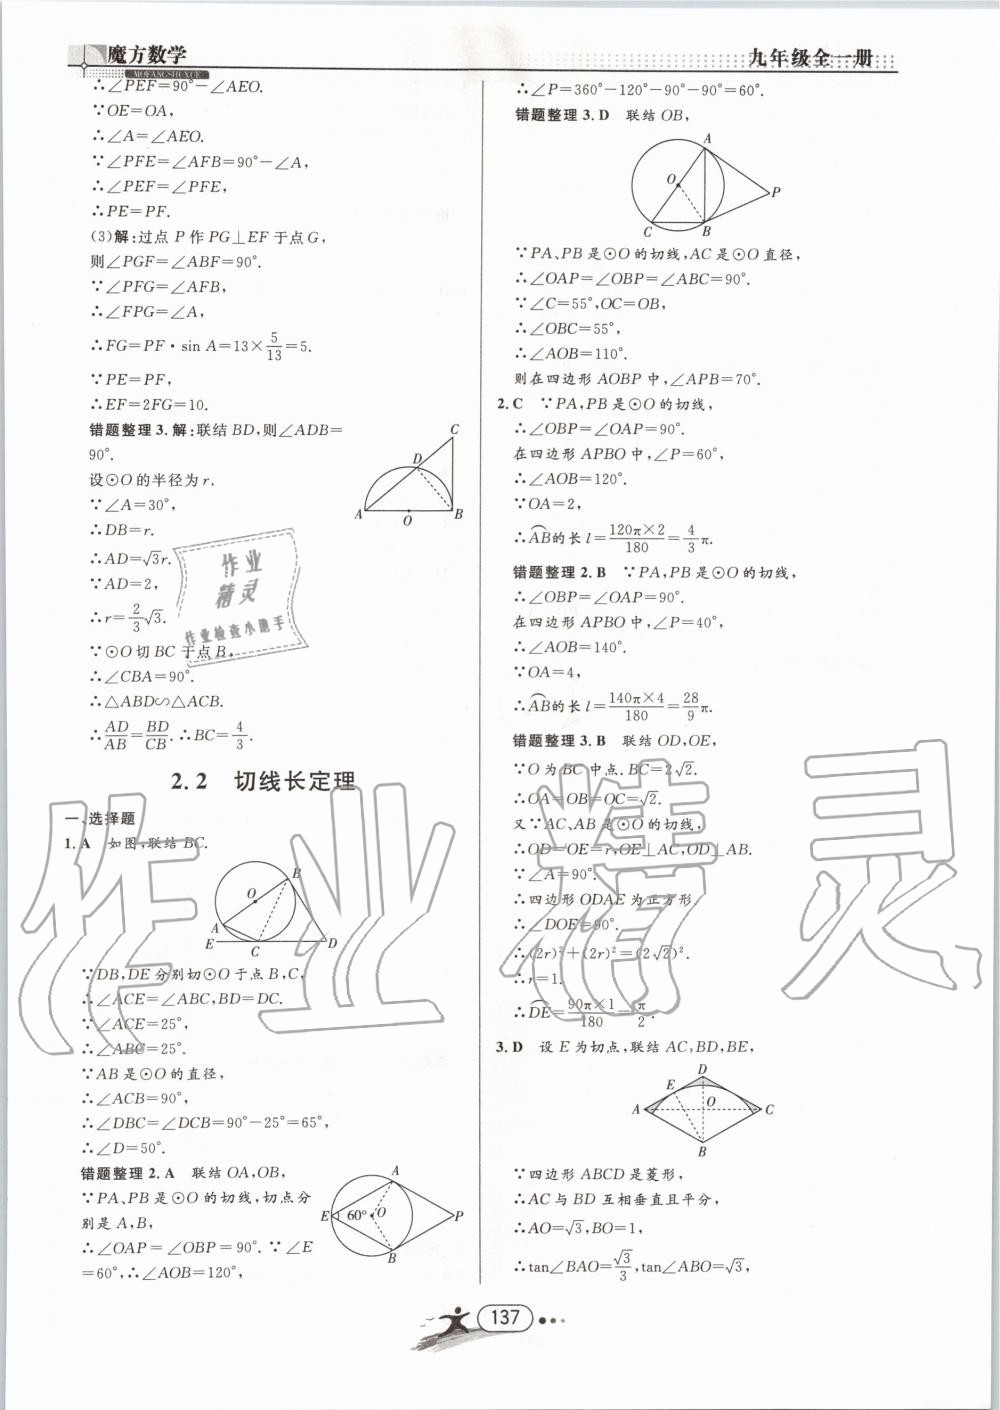 魔方数学
MOFANGSHUXUE
九年级全一册
∴∠PEF=90°-∠AEO.
∵OE=OA,
∴∠A=∠AEO.
∵∠PFE=∠AFB=90°-∠A,
∴∠PEF=∠PFE,
∴PE=PF.
(3)解:过点P作PG⊥EF于点G,
则∠PGF=∠ABF=90°.
∵∠PFG=∠AFB,
∴∠FPG=∠A,
∴FG=PF·sin A=13×5/13=5.
∵PE=PF,
∴EF=2FG=10.
错题整理3.解:联结BD,则∠ADB=
90°.
设⊙O的半径为r.
∵∠A=30°,
∴DB=r.
∴AD=√3r.
∵AD=2,
∴r=2/3√3.
∵⊙O切BC于点B,
∴∠CBA=90°.
∴△ABD∽△ACB.
∴AD/AB=BD/CB.∴BC=4/3.
C
D
A
O
B
作业
精灵
作业检查小助手
2.2 切线长定理
一、选择题
1.A 如图,联结BC.
B
O
A
E
C
D
∵DB,DE分别切⊙O于点B,C,
∴∠ACE=∠ABC,BD=DC.
∵∠ACE=25°,
∴∠ABC=25°.
∵AB是⊙O的直径,
∴∠ACB=90°,
∴∠DBC=∠DCB=90°-25°=65°,
∴∠D=50°.
错题整理2.A 联结OA,OB,
∵PA、PB是⊙O的切线,切点分
别是A,B,
∴∠OAP=∠OBP=90°.∵∠E
=60°,∴∠AOB=120°,
A
E
60°
O
P
B
∴∠P=360°-120°-90°-90°=60°.
错题整理3.D 联结OB,
A
O
P
C
B
∵PA、PB是⊙O的切线,AC是⊙O直径,
∴∠OAP=∠OBP=∠ABC=90°.
∵∠C=55°,OC=OB,
∴∠OBC=55°,
∴∠AOB=110°.
则在四边形AOBP中,∠APB=70°.
2.C ∵PA,PB是⊙O的切线,
∴∠OBP=∠OAP=90°.
在四边形APBO中,∠P=60°,
∴∠AOB=120°.
∵OA=2,
∴⌒AB的长l=120π×2/180=4/3π.
错题整理2.B ∵PA,PB是⊙O的切线,
∴∠OBP=∠OAP=90°.
在四边形APBO中,∠P=40°,
∴∠AOB=140°.
∵OA=4,
∴⌒AB的长l=140π×4/180=28/9π.
错题整理3.B 联结OD,OE,
∵O为BC中点.BC=2√2.
∴OA=OB=OC=√2.
又∵AC、AB是⊙O的切线,
∴OD=OE=r,OE⊥AC,OD⊥AB.
∵∠A=90°.
∴四边形ODAE为正方形,
∴∠DOE=90°.
∴(2r)²+(2r)²=(2√2)².
∴r=1.
∴⌒DE=90π×1/180=π/2.
3.D 设E为切点,联结AC,BD,BE,
D
E
A
O
C
B
∵四边形ABCD是菱形,
∴AC与BD互相垂直且平分,
∴AO=√3,BO=1,
∴tan∠BAO=√3/3,tan∠ABO=√3,
137
作业精灵